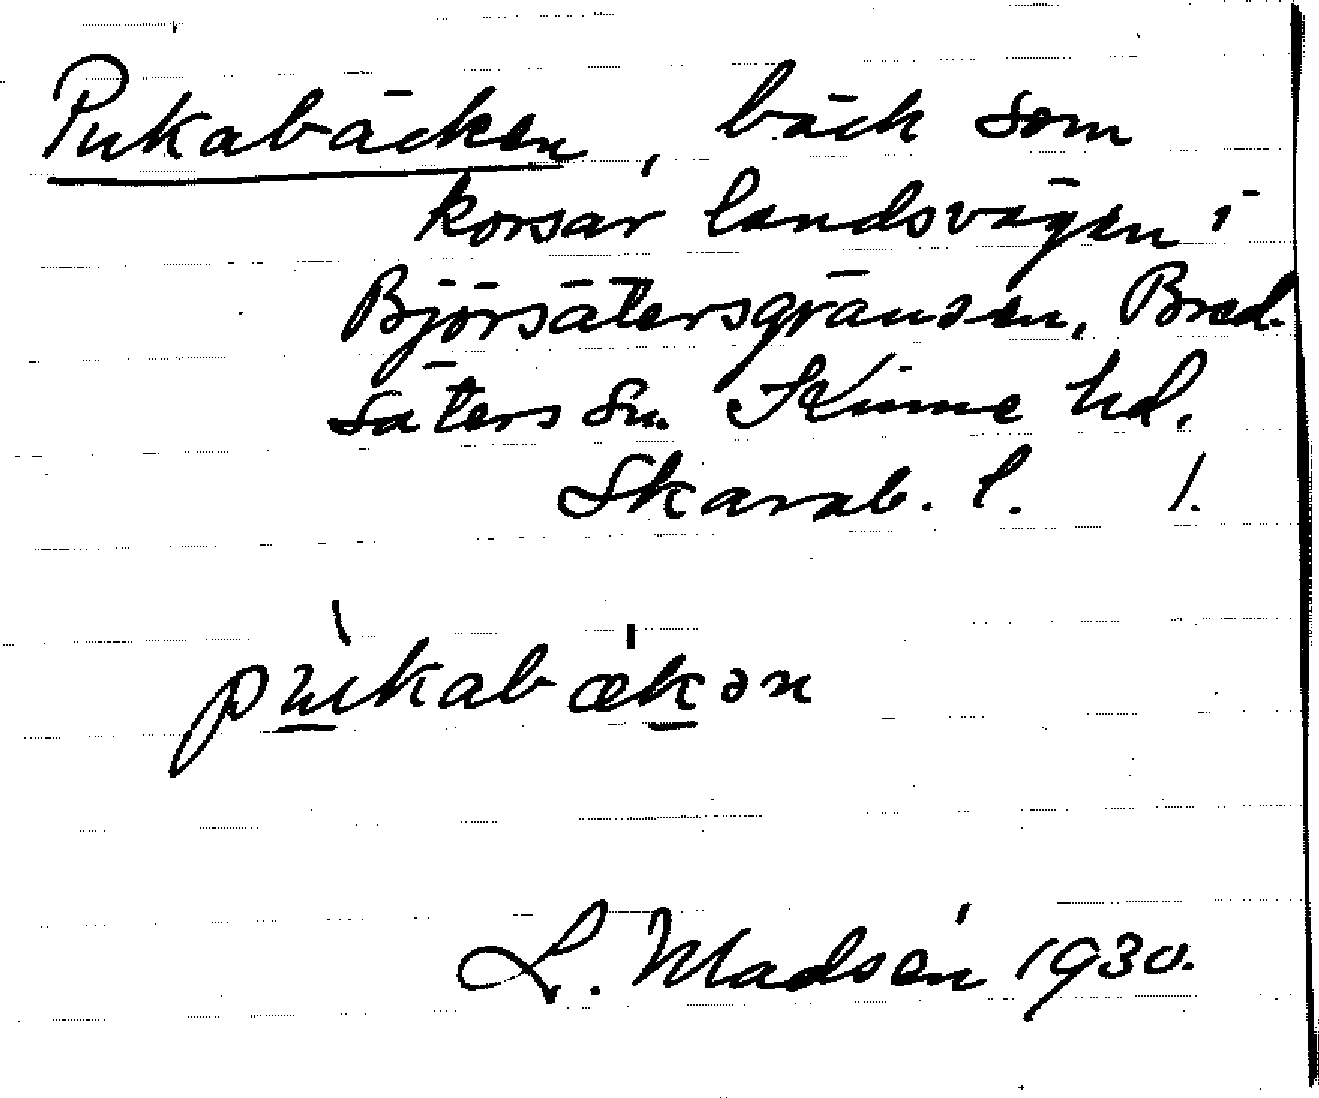 Pukabäcken, bäck som
korsar landsvägen i
Björsätersgränsen, Bred-
säters sn. Kinne hd.
Skarab. l. 1.
pu̲kabæk̲ən
L. Madsén 1930.